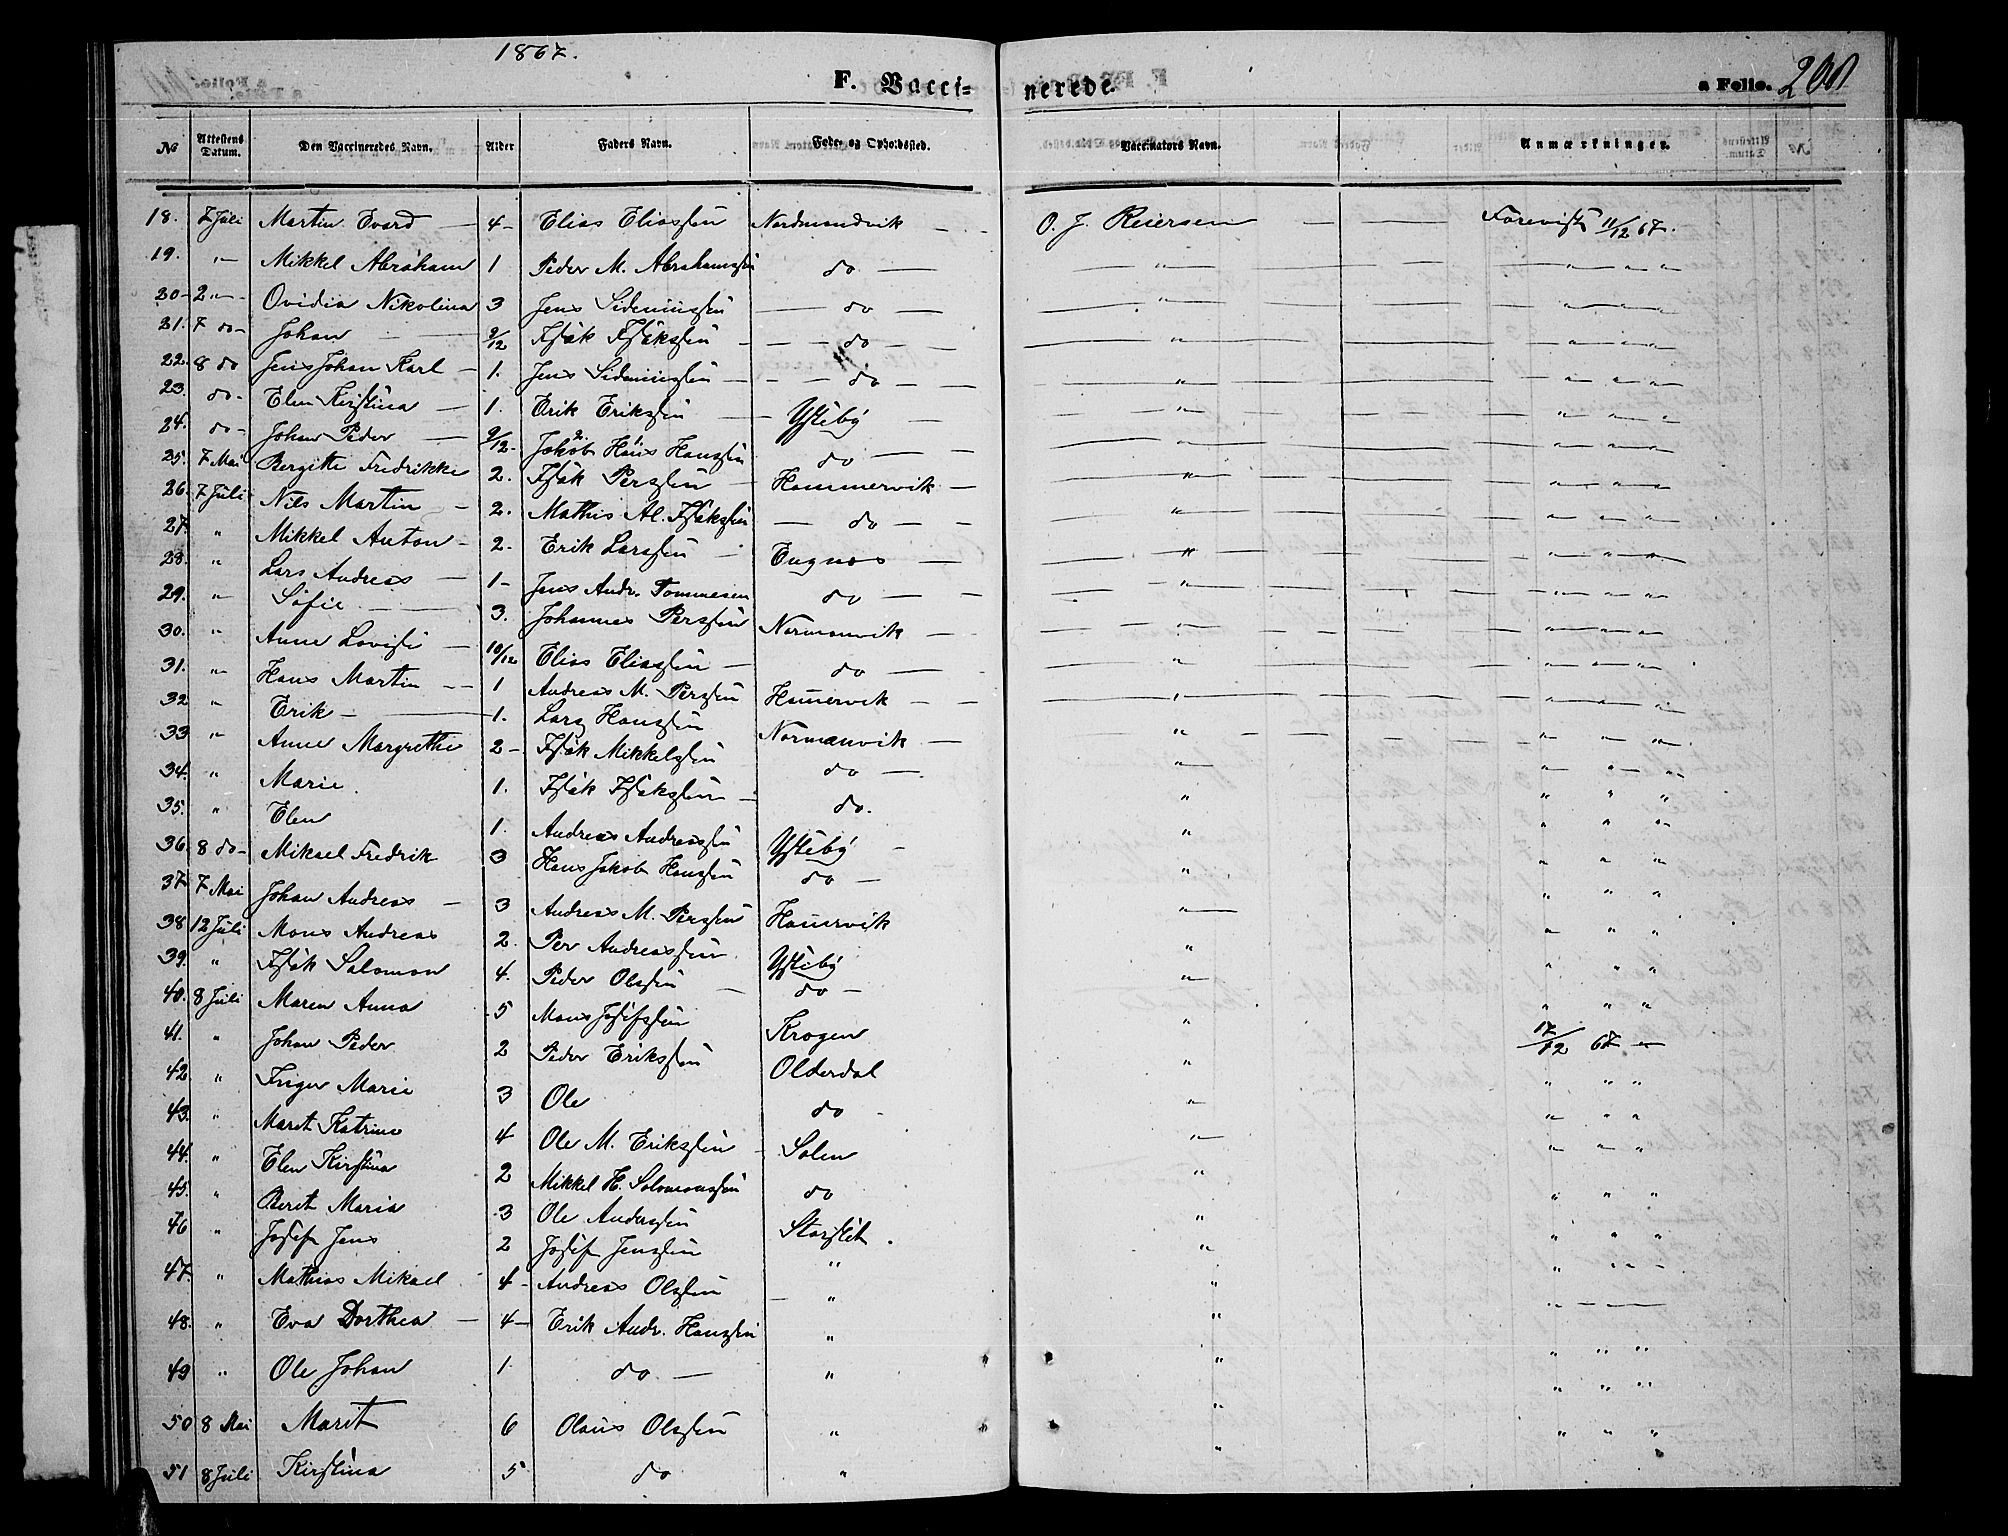 1867.
F. Vacci-
nerede.
a Folio. 200
No Attestens Datum. Den Vaccineredes Navn. Alder Faders Navn. Føde- og Opholdssted. Vaccinators Navn. Anmærkninger.
18. 7 Juli Martin Evard — 4 - Elias Eliassen Nordmandvik - - O. J. Reiersen — — Forevist 11/12 67.
19. " Mikkel Abraham 1 Peder M. Abrahamsen do — " " " " "
20 - 2 " - Ovidia Nikolina 3 Jens Sideniussen — do — " " " " "
21. 7 do - Johan — 9/12 Isak Isaksen - - do — " " " " "
22. 8 do Jens Johan Karl - 1. Jens Sideniussen — - - do - — " " " " "
23. do - Elen Kirstina — 1. Erik Eriksen — - Ystebÿ — " " " " "
24. do - Johan Peder — 9/12 - Jakob Hans Hansen do — - " " " " "
25. 7 Mai Bergitte Fredrikke 2. Isak Persen — Hammervik — " " " " "
26. 7 Juli Nils Martin - 2. Mathis Al. Isaksen — do — - " " " " "
27. " Mikkel Anton - 2. Erik Larssen - Engnes — " " " " "
28. " Lars Andreas — 1 - Jens Andr. Tommesen do — - " " " " "
29. " Sofie — 3. Johannes Perssen Normanvik — " " " " "
30. " Anne Lovise — 10/12 Elias Eliassen — do — " " " " "
31. " Hans Martin — 1 Andreas M. Perssen Hamervik - - " " " " "
32 " Erik — 1. Lars Hanssen Normanvik — " " " "
33 " Anne Margrethe 2 - Isak Mikkelsen do — " " " "
34. " Marie. 1. Isak Isaksen — do. " " " "
35. " Elen 1. Andreas Andreassen Ystebÿ - " " " "
36. 8 do - Mikael Fredrik 3 Hans Jakob Hanssen do — " " " "
37 7 Mai Johan Andreas - 3 Andreas M. Perssen Hamervik " " " "
38 12 Juli Mons Andreas 2. Per Andreassen Ystebÿ " " " "
39. " Isak Salomon 4. Peder Olssen — do — " " " "
40. 8 Juli Maren Anna 5 Mons Josefsen Krogen " 17/12 67 —
41. " Johan Peder 2 Peder Erikssen Olderdal " " " "
42. " Inger Marie 3 Ole do - " " " "
43. " Marit Katrine 4 Ole M. Erikssen - Solen " " " "
44. " Elen Kirstina 2 Mikkel H. Salomonssen do " " " "
45. " Berit Maria 3 Ole Anderssen Storslet. " " " "
46 " Josef Jens 2 Josef Jenssen " " " " "
47. " Mathias Mikael 4 - Andreas Olssen — " " " — —
48. " Eva Dorthea — 4 — Erik Andr. Hanssen " " " " "
49 " Ole Johan 1. do — " " " " "
50 8 Mai Marit 6 Olaus Olssen " " " " "
51 8 Juli Kirstina 5 do " "